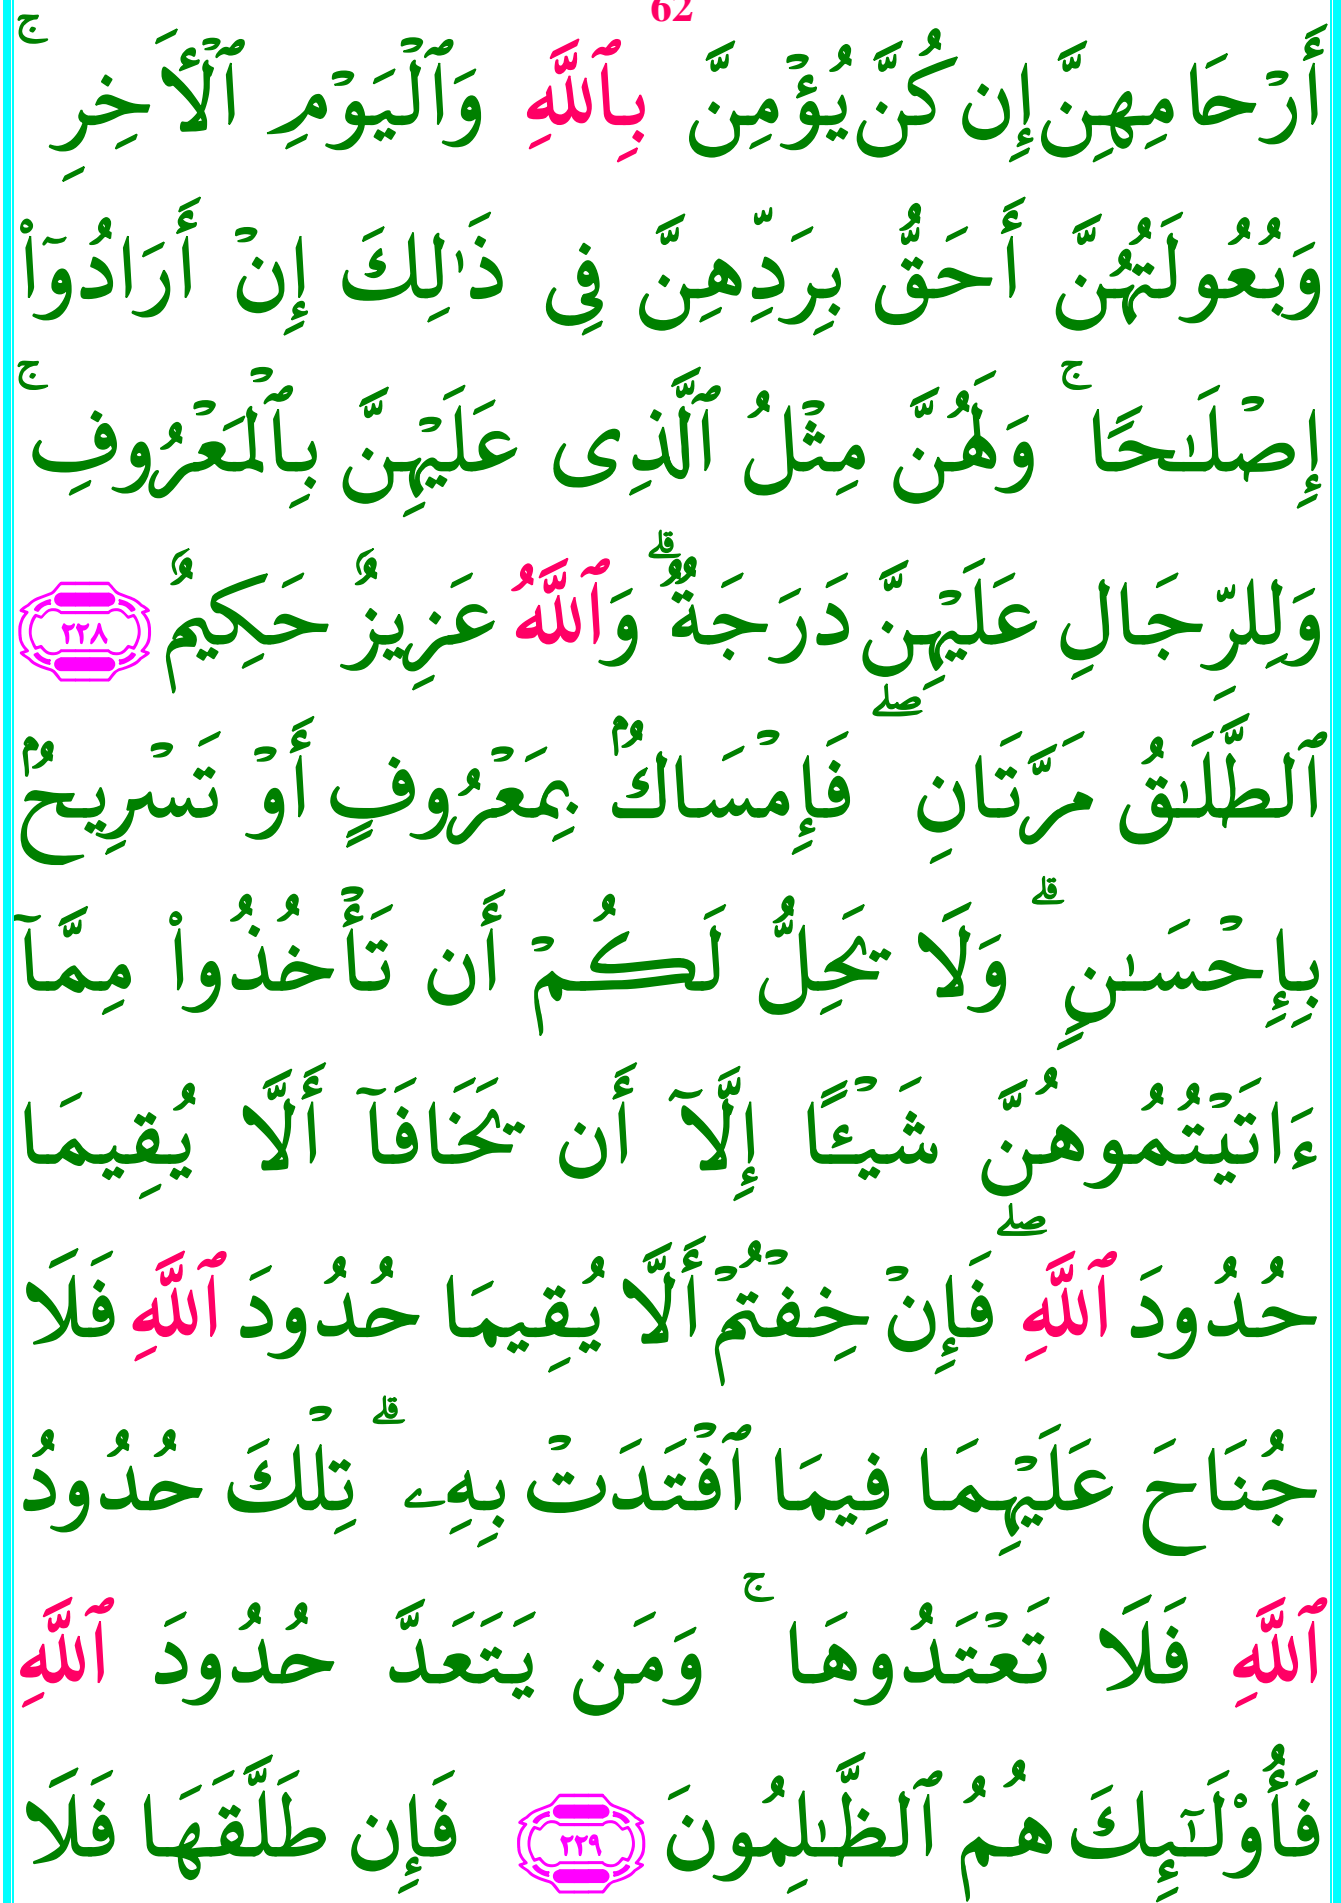 62
أَرْحَامِهِنَّ إِن كُنَّ يُؤْمِنَّ بِٱللَّهِ وَٱلْيَوْمِ ٱلْأَخِرِ ۚ
وَبُعُولَتُهُنَّ أَحَقُّ بِرَدِّهِنَّ فِى ذَٰلِكَ إِنْ أَرَادُوٓا۟
إِصْلَـٰحًا ۚ وَلَهُنَّ مِثْلُ ٱلَّذِى عَلَيْهِنَّ بِٱلْمَعْرُوفِ ۚ
وَلِلرِّجَالِ عَلَيْهِنَّ دَرَجَةٌ ۗ وَٱللَّهُ عَزِيزٌ حَكِيمٌ ٢٢٨
ٱلطَّلَـٰقُ مَرَّتَانِ ۖ فَإِمْسَاكٌۢ بِمَعْرُوفٍ أَوْ تَسْرِيحٌۢ
بِإِحْسَـٰنٍ ۗ وَلَا يَحِلُّ لَكُمْ أَن تَأْخُذُوا۟ مِمَّآ
ءَاتَيْتُمُوهُنَّ شَيْـًٔا إِلَّآ أَن يَخَافَآ أَلَّا يُقِيمَا
حُدُودَ ٱللَّهِ ۖ فَإِنْ خِفْتُمْ أَلَّا يُقِيمَا حُدُودَ ٱللَّهِ فَلَا
جُنَاحَ عَلَيْهِمَا فِيمَا ٱفْتَدَتْ بِهِۦ ۗ تِلْكَ حُدُودُ
ٱللَّهِ فَلَا تَعْتَدُوهَا ۚ وَمَن يَتَعَدَّ حُدُودَ ٱللَّهِ
فَأُو۟لَـٰٓئِكَ هُمُ ٱلظَّـٰلِمُونَ ٢٢٩ فَإِن طَلَّقَهَا فَلَا